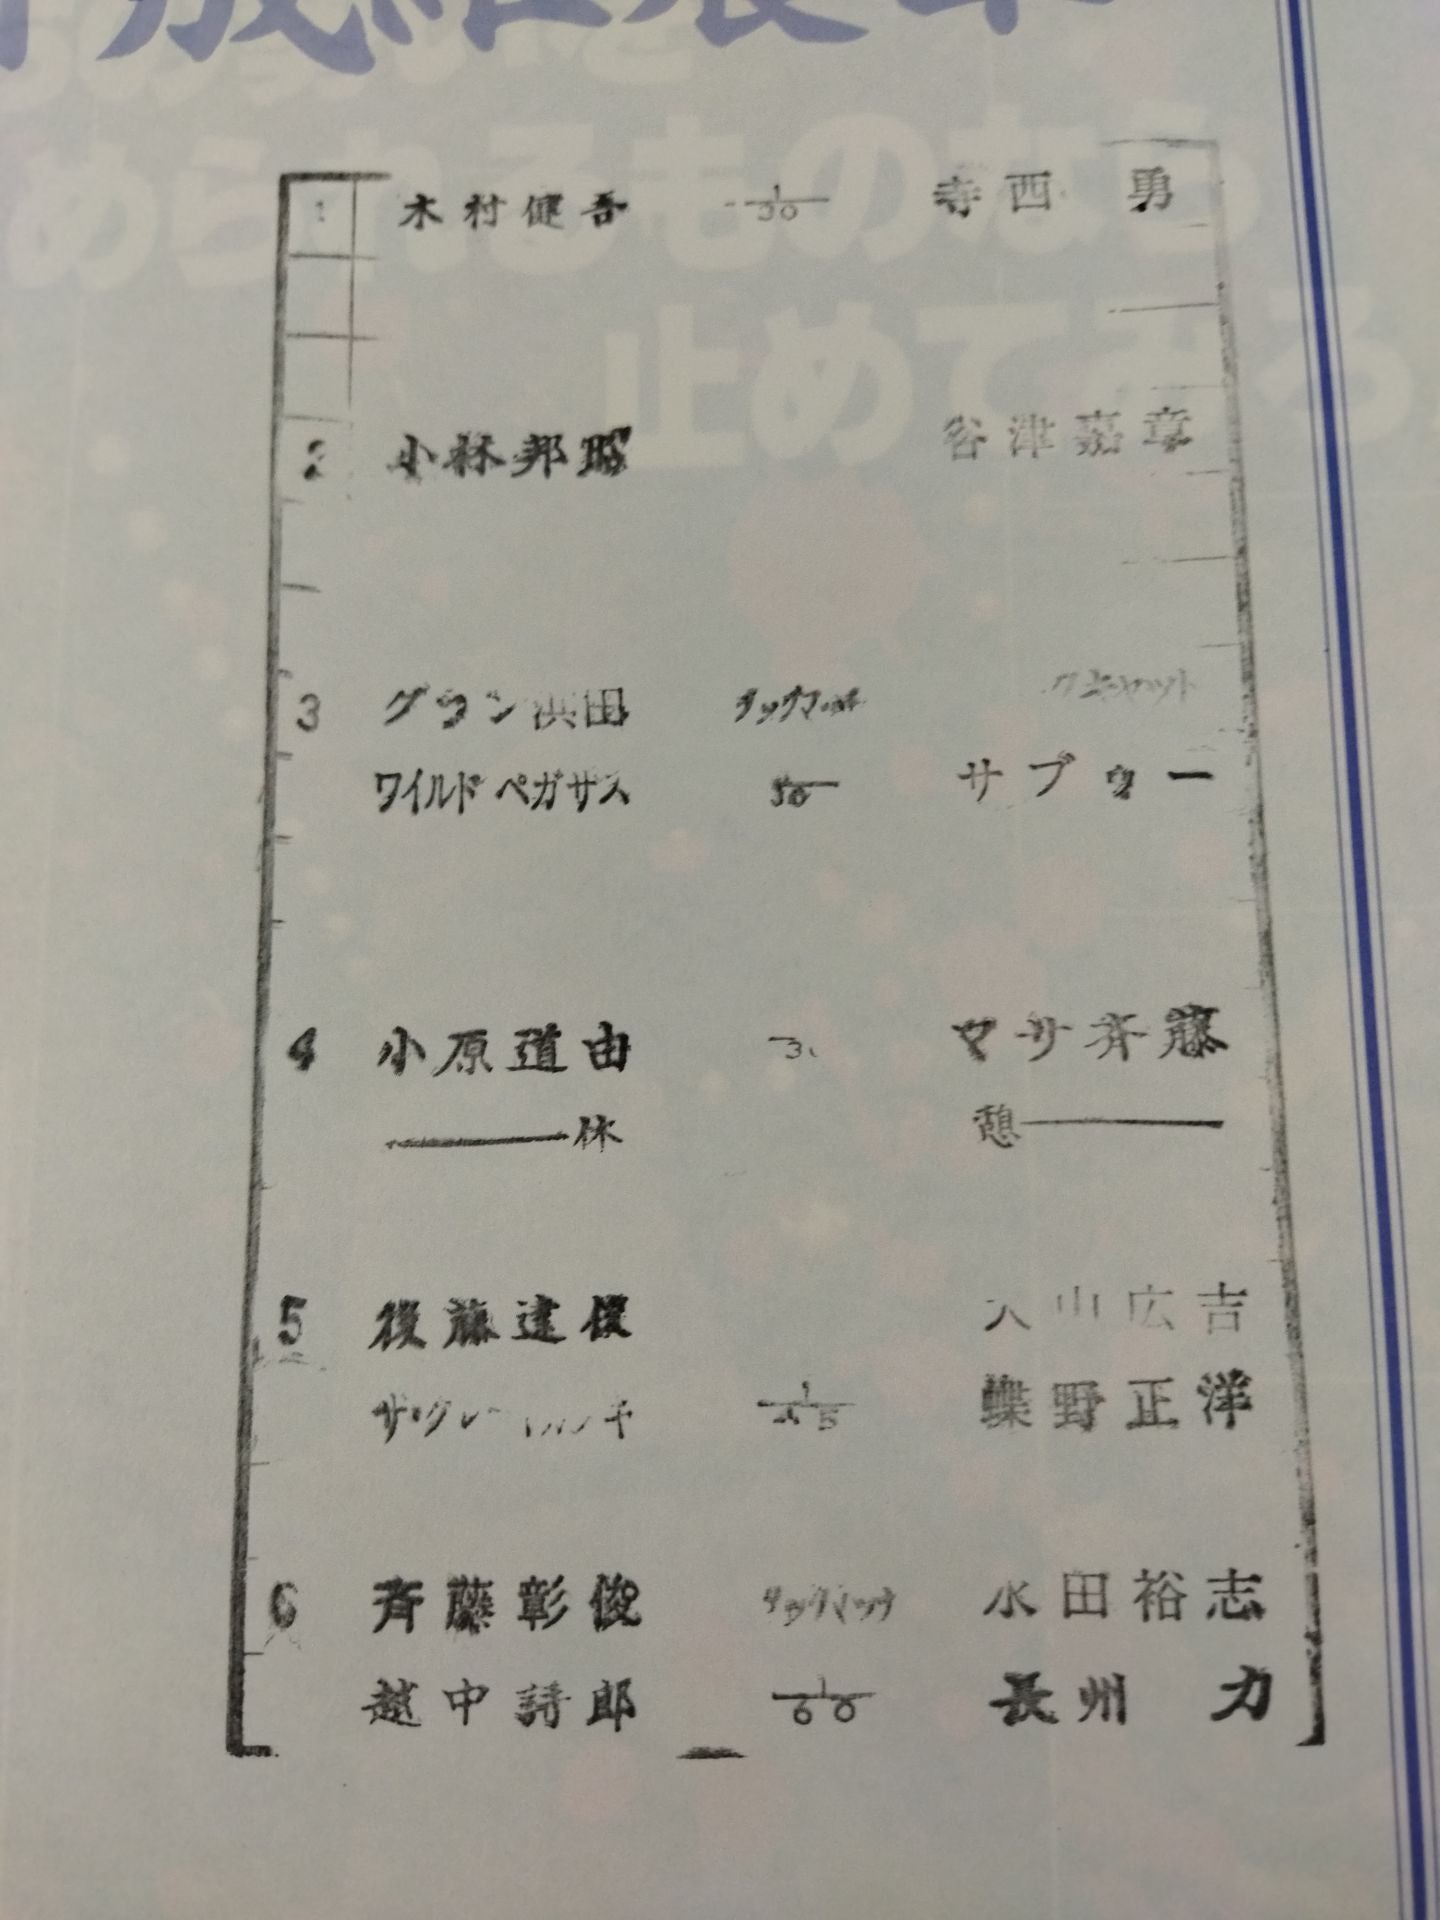 められるものなら
止めてみろ
1 木村健吾 1/30 寺西 勇
2 小林邦昭 谷津嘉章
3 グラン浜田 タッグマッチ
ワイルドペガサス 30 サブゥー
4 小原道由 マサ斉藤
休 憩
5 後藤達俊 天山広吉
サ・グレート 1/45 蝶野正洋
6 斉藤彰俊 タッグマッチ 永田裕志
越中詩郎 1/60 長州 力